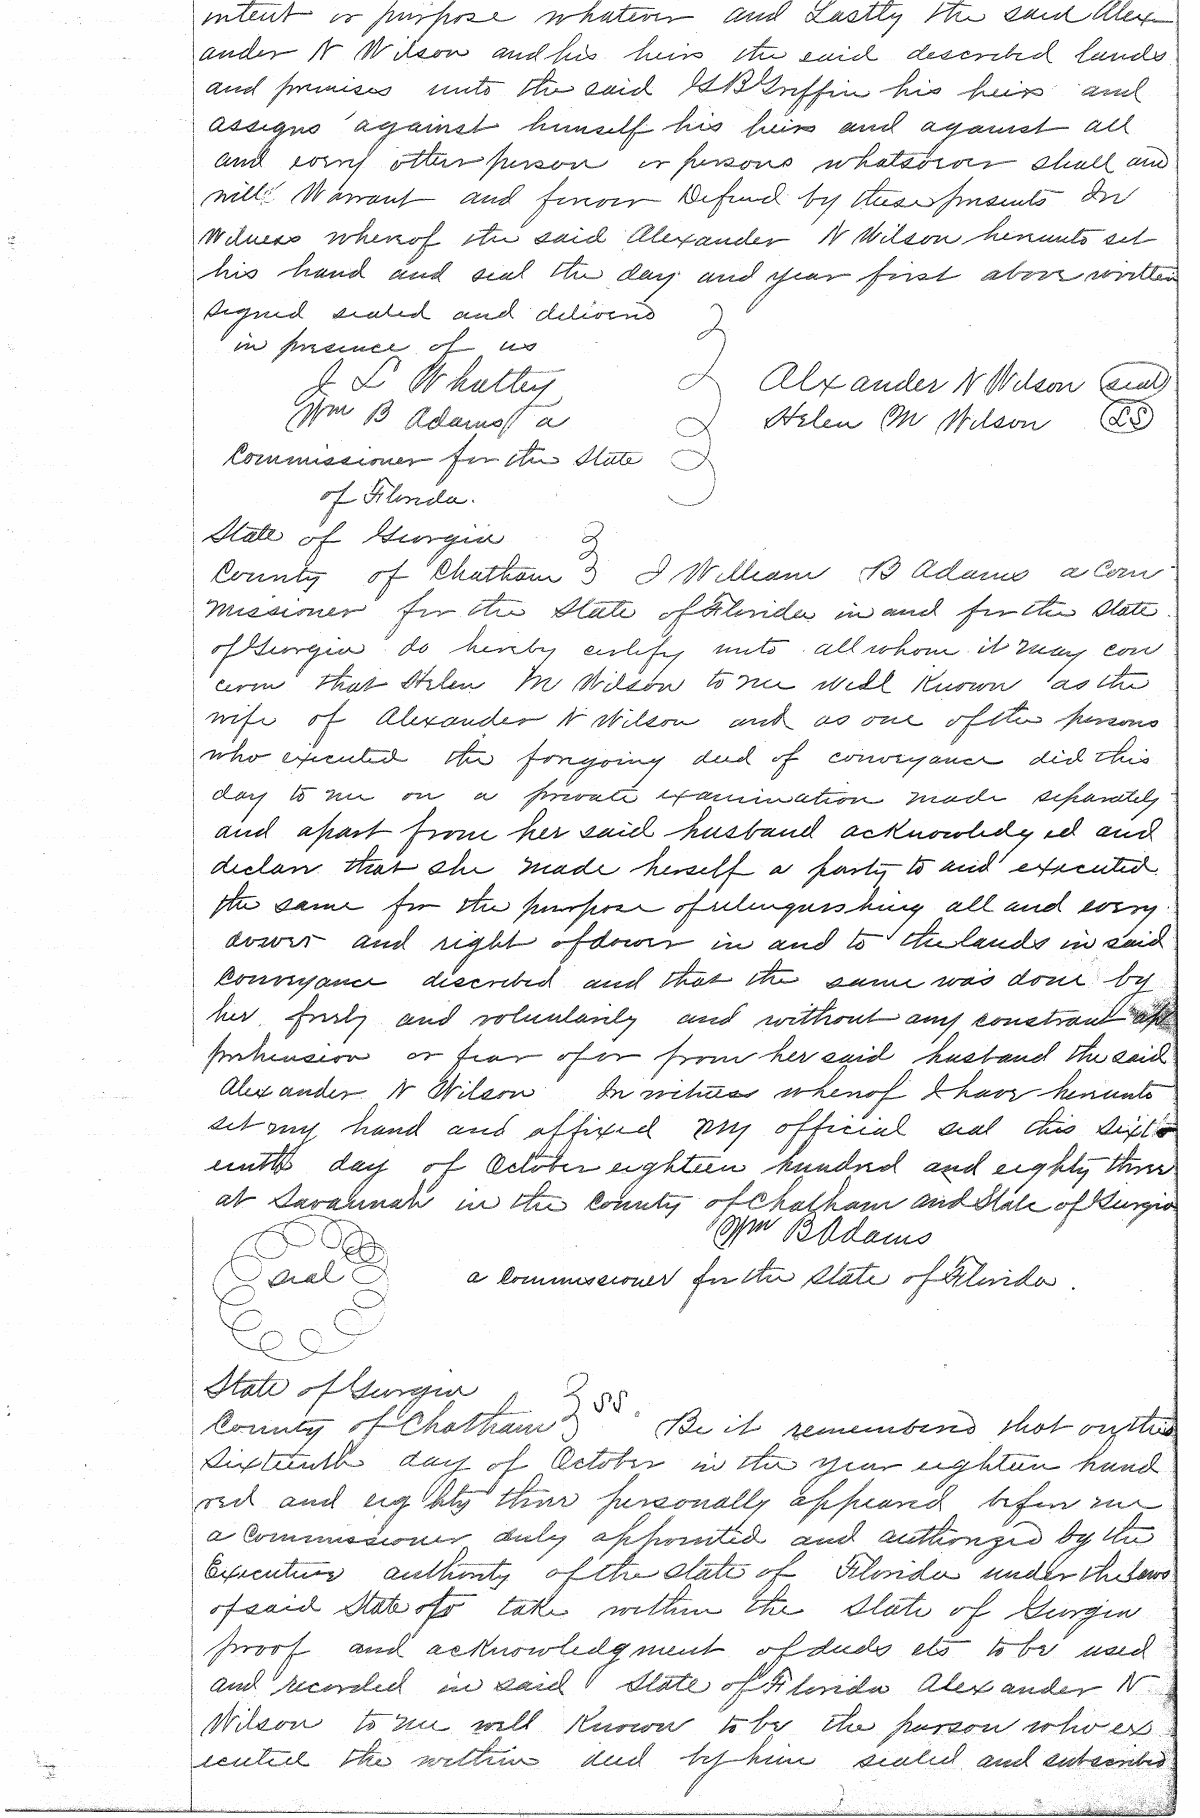 intent or purpose whatever and Lastly the said Alex
ander N Wilson and his heirs the said described lands
and premises unto the said Griffin his heirs and
assigns against himself his heirs and against all
and every other person or persons whatsoever shall and
will Warrant and forever Defend by these presents In
Witness whereof the said Alexander N Wilson hereunto set
his hand and seal the day and year first above written
signed sealed and delivered
in presence of us
J L Whatley
Alexander N Wilson (seal)
Wm B Adams a
Helen M Wilson (LS)
Commissioner for the State
of Florida.
State of Georgia
County of Chatham } I William B Adams a Com
missioner for the State of Florida in and for the State
of Georgia do hereby certify unto all whom it may con
cern that Helen M Wilson to me well Known as the
wife of Alexander N Wilson and as one of the persons
who executed the forgoing deed of conveyance did this
day to me on a private examination made separately
and apart from her said husband acknowledged and
declare that she made herself a party to and executed
the same for the purpose of relenquishing all and every
dower and right of dower in and to the lands in said
Conveyance discribed and that the same was done by
her freely and voluntarily and without any constraint ap
prehension or fear of or from her said husband the said
Alexander N Wilson In witness whereof I have hereunto
set my hand and affixed my official seal this sixte
enth day of October eighteen hundred and eighty three
at Savannah in the County of Chatham and State of Georgia
Wm B Adams
seal a Commissioner for the State of Florida.
State of Georgia
County of Chatham } SS. Be it remembered that on this
Sixteenth day of October in the year eighteen hund
red and eighty three personally appeared before me
a Commissioner duly appointed and authorized by the
Executive authority of the State of Florida under the laws
of said State to take within the State of Georgia
proof and acknowledgment of deeds etc to be used
and recorded in said State of Florida Alexander N
Wilson to me well Known to be the person who ex
ecuted the within deed by him sealed and subscribed